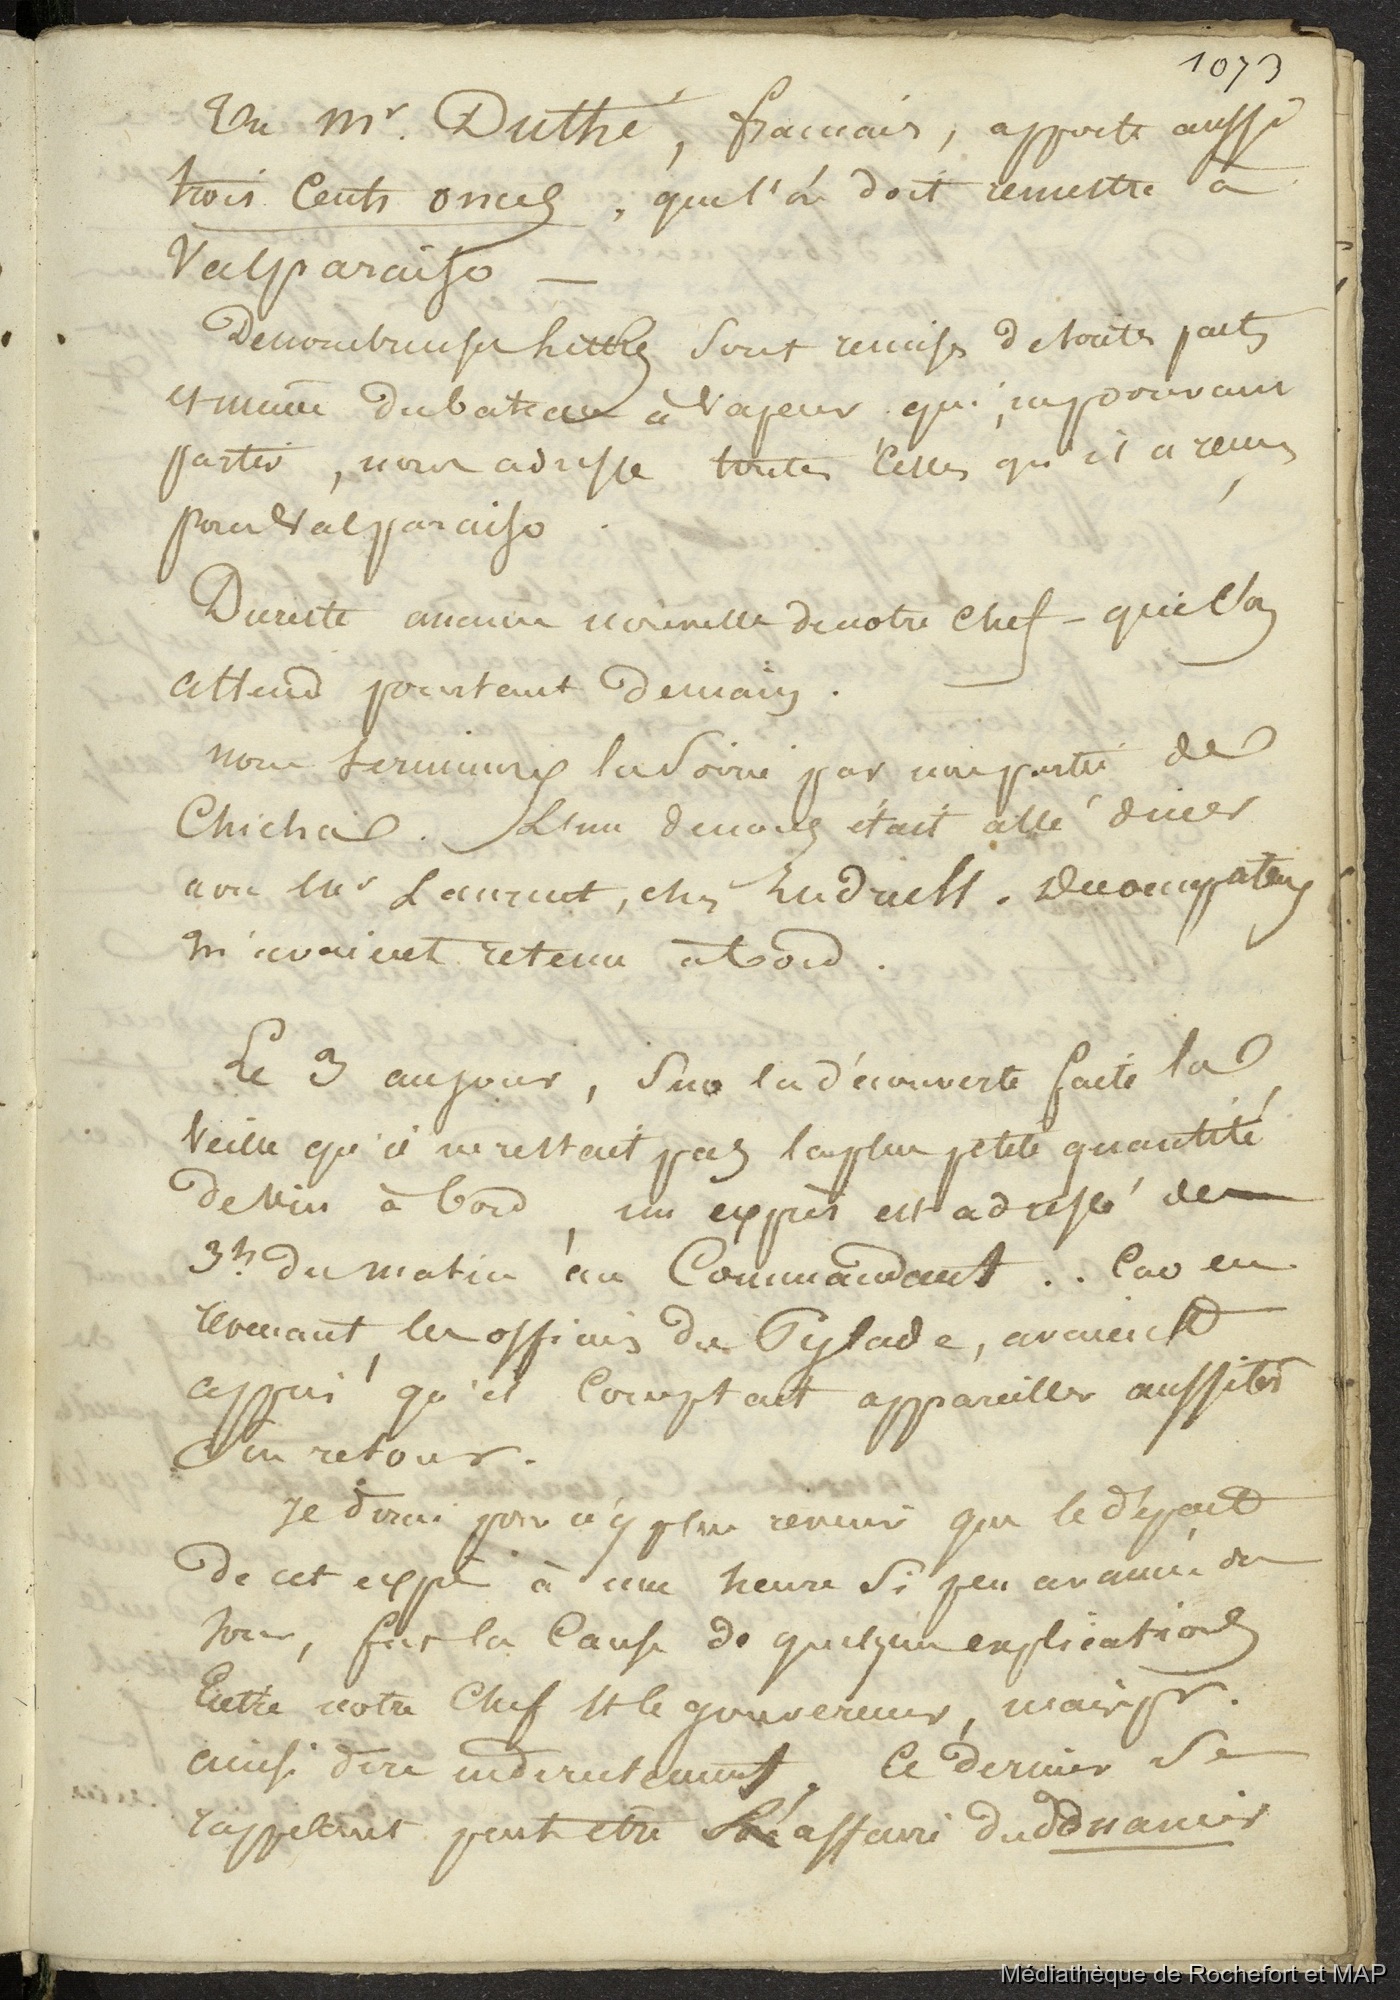 1073
Un Mr. Duthé, francais, apporte aussi
trois Cents onces, que l'on doit remettre à
Valparaiso —
De nombreuses lettres sont remises de toutes parts
et même du bateau à vapeur qui, ne pouvant
partir, nous adresse toutes celles qu'il a reçues
pour Valparaiso.
Du reste aucune nouvelle de notre Chef - que l'on
attend pourtant demain.
nous terminons la soirée par une partie de
Chicha. L'un de nous était allé diner
avec Mr Laurent, chez . Des occupations
m'avaient retenu à bord.
Le 3 au jour, sur la découverte faite la
veille qu'il ne restait pas la plus petite quantité
de vin à bord, un exprès est adressé de
3h. du matin au Commandant.. Car en
revenant, les officiers du Pylade, avaient
appris qu'il comptait appareiller aussitôt
son retour.
Je dirai pour n'y plus revenir que le départ
de cet exprès à une heure si peu avancée du
jour, fut la Cause de quelques explications
Entre notre Chef et le gouverneur, mais pr.
ainsi dire indirectement. Ce dernier se
rappelant peut être affaire du douanier
Médiathèque de Rochefort et MAP